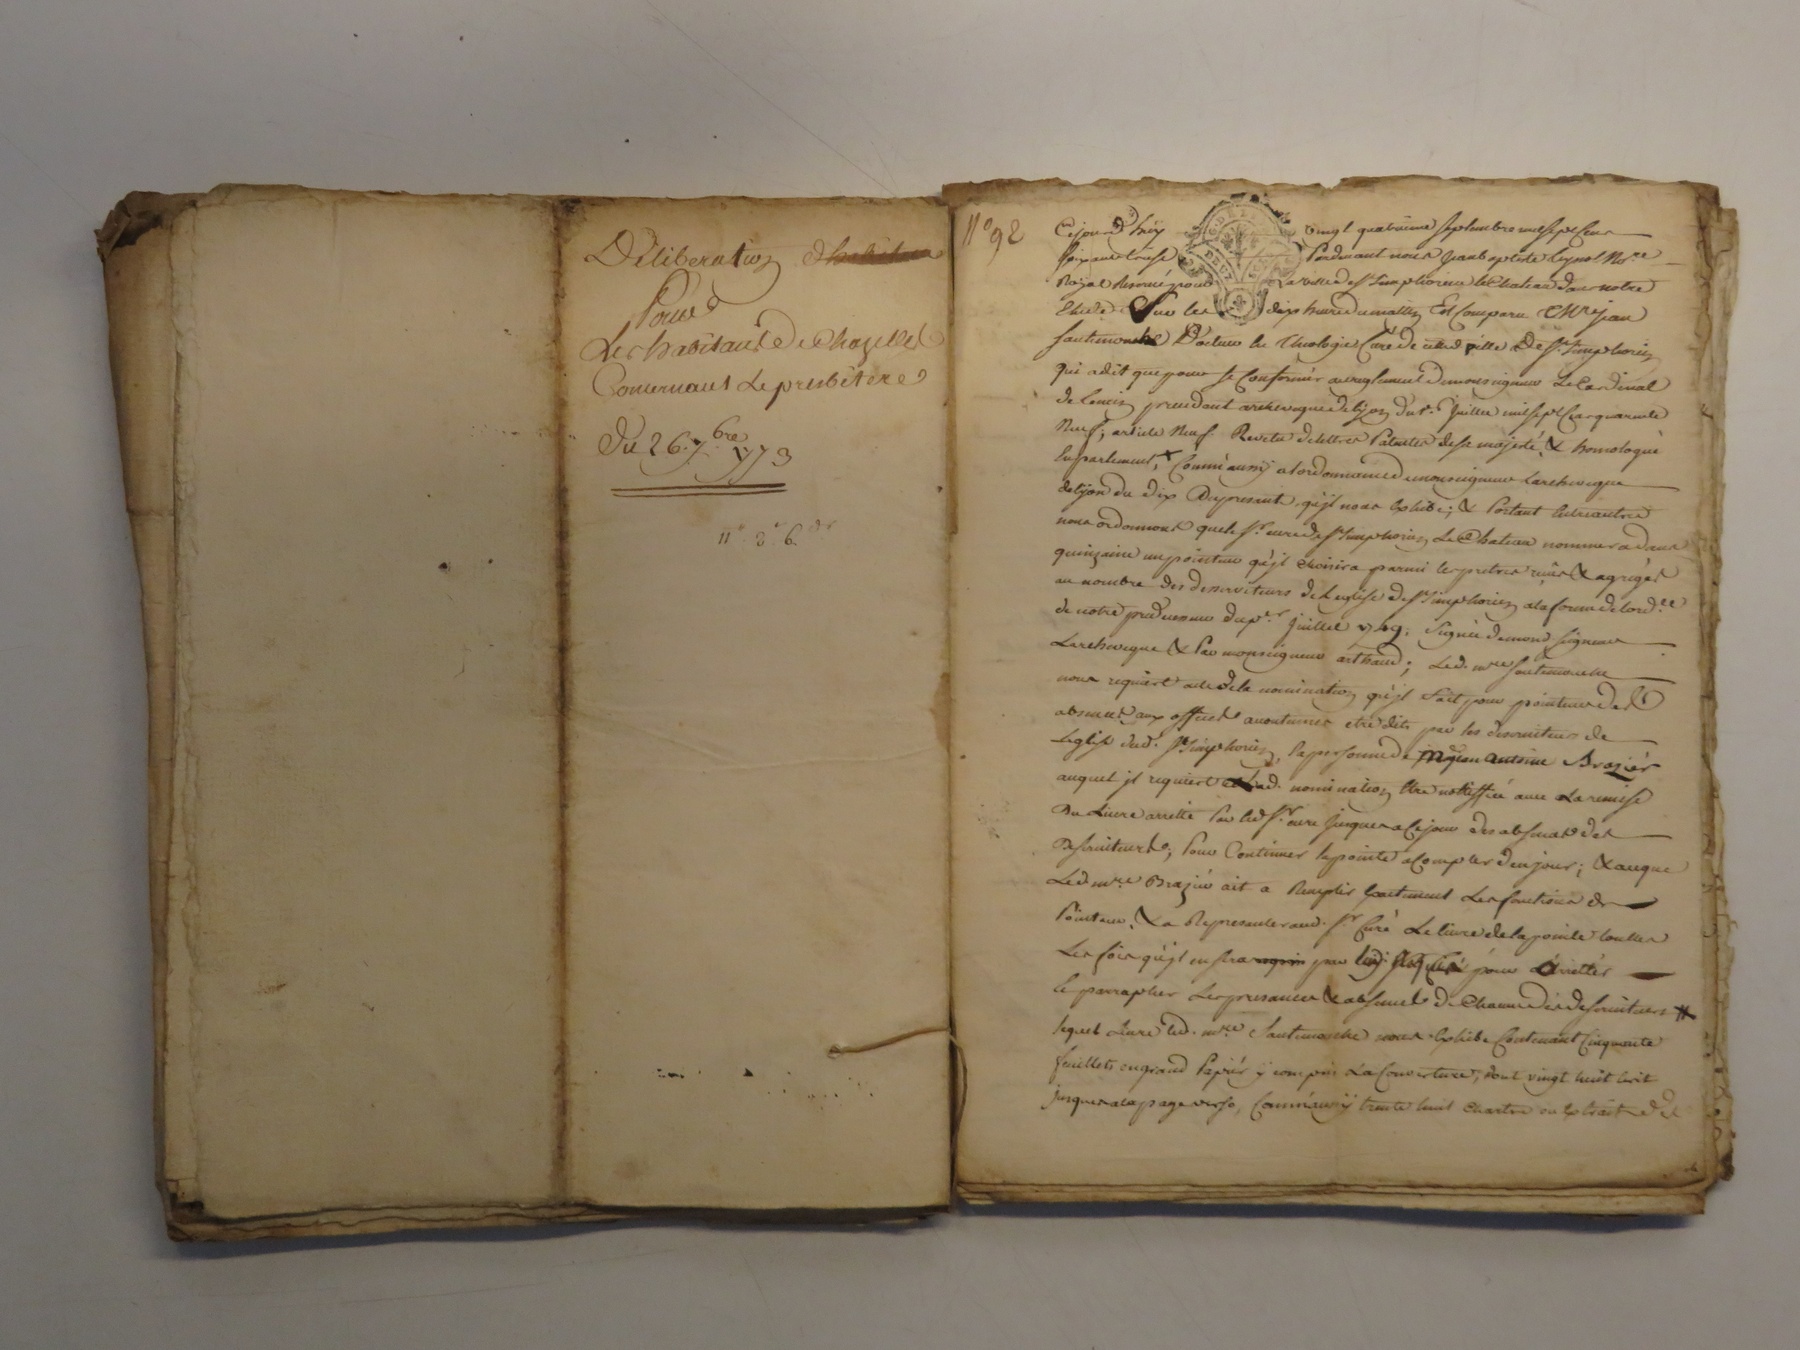 Déliberation
Pour
Les habitants de Chazelles
Concernant Le presbitere
Du 26. 7.bre 1773
11# 2s 6ds
n° 92
Cejourd'huy vingt quatrieme septembre mil sept cent
soixante treise Pardevant nous Jean baptiste not.re
Royal Reservé pour La ville de st simphorien le Chateau dans notre
Etude Sur les dix heures du matin Est Comparu Mre jean
Docteur En Theologie Curé de ville De st. simphorien
qui a dit que pour se Conformer au reglement De monseigneur Le Cardinal
de archeveque de lyon Du Juillet mil sept cent quarante
Neuf, article Neuf Revetu de lettres Patentes de sa majesté, & homologué
En parlement, Comme aussy a lordonnance de monseigneur Larcheveque
de lyon du dix Du present, qu'il nous Exhibe; & Portant
nous ordonnons que le sr. curé de st simphorien Le Chateau nommera dans
quinzaine un pointeur qu'il choisira parmi les pretres & agrégés
au nombre des desserviteurs de Leglise de st simphorien a la forme de lord.ce
de notre predecesseur du Juillet 1749. Signée de mond seigneur
Larcheveque & Par monseigneur arthaud; Led. mre
nous requiert acte de la nomination qu'il fait pour pointeur des
absences aux offices etre dits par les desserviteurs de
Leglise dud. st simphorien, la personne de jean antoine Brazier
auquel il requiert lad. nomination Etre notiffiée avec La remise
Du Livre arretté Par led sr. curé jusques a ce jour des absences des
Desserviteurs, Pour Continuer la pointe a Compter de ce jour; & a ce que
Led mre Brazier ait a Remplir Exactement Les fonctions de
Pointeur, & a Representer aud. sr Curé Le livre de la pointe touttes
Les fois qu'il en sera par pour Arretter
& parrapher Les presences & absences de Chacun des desserviteurs
lequel Livre led. mre nous Exhibe Contenant Cinquante
feuillets en grand Papier y compris La Couverture, dont vingt huit
jusques a la page verso, Comme aussy trente huit